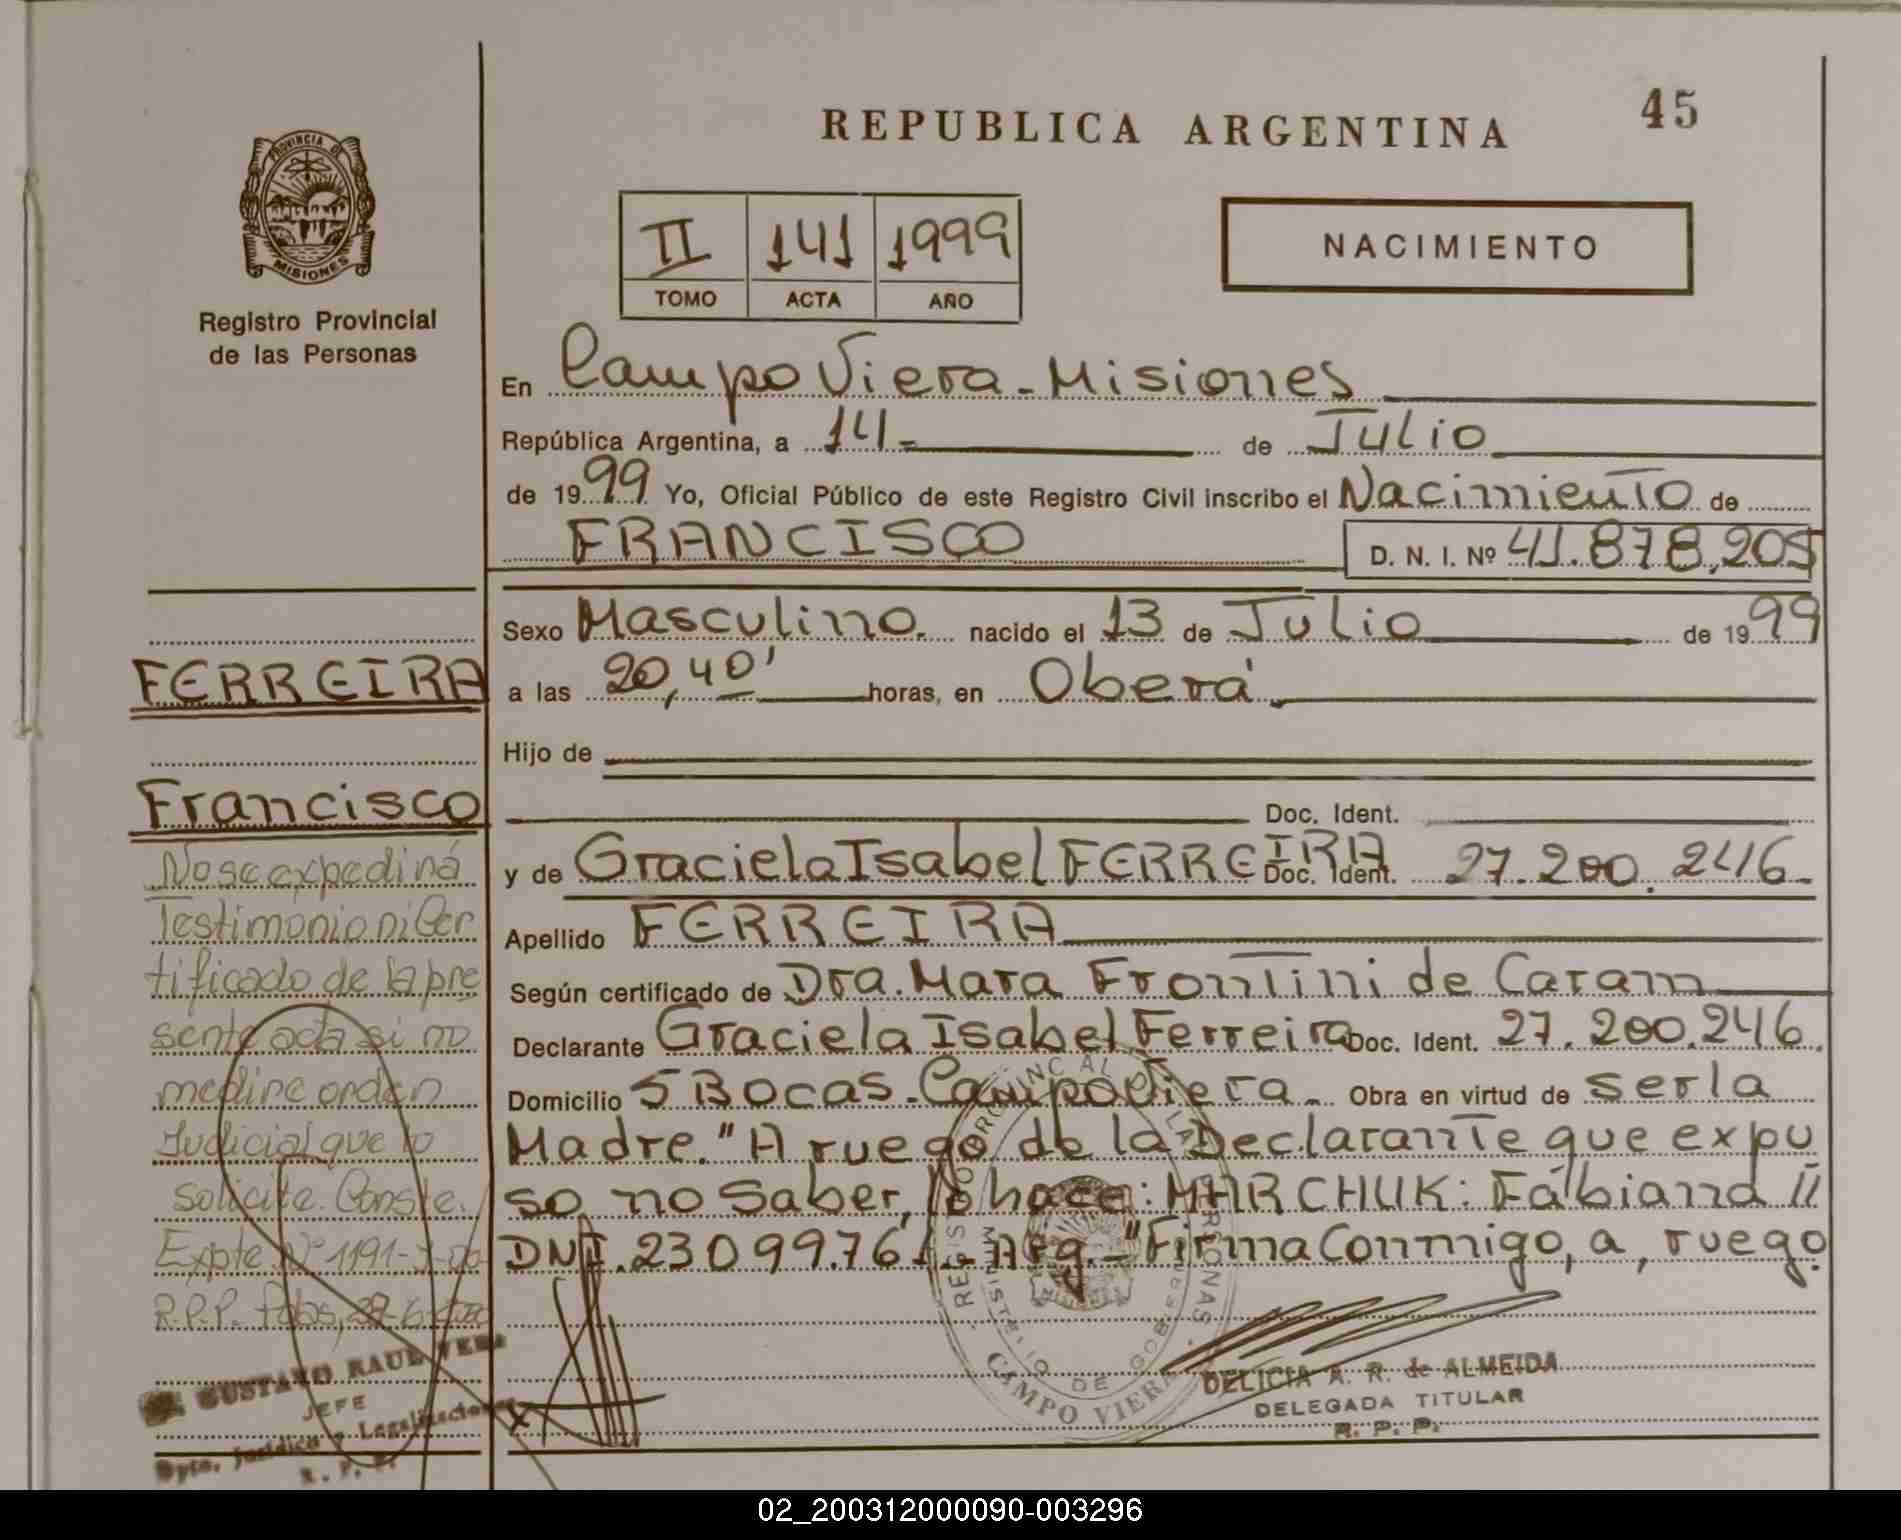 REPUBLICA ARGENTINA
45
PROVINCIA DE
MISIONES
Registro Provincial
de las Personas
II 141 1999
TOMO ACTA AÑO
NACIMIENTO
En Campo Viera - Misiones
República Argentina, a 14 - de Julio
de 1999 Yo, Oficial Público de este Registro Civil inscribo el Nacimiento de
FRANCISCO D. N. I. Nº 41.878,205
Sexo Masculino. nacido el 13 de Julio de 1999
a las 20,40' horas, en Oberá
Hijo de
Doc. Ident.
y de Graciela Isabel FERREIRA Doc. Ident. 27.200.246
Apellido FERREIRA
Según certificado de Dra. Mara Frontini de Caram
Declarante Graciela Isabel Ferreira Doc. Ident. 27.200.246.
Domicilio 5 Bocas - Campo Viera - Obra en virtud de ser la
Madre. "A ruego de la Declarante que expu
so no Saber, lo hace: MARCHUK: Fabiana
DNI. 23099.761 - Arg. - "Firma Conmigo, a, ruego.
FERREIRA
Francisco
No se expedirá
Testimonio ni Cer
tificado de la pre
sente acta si no
medire orden
Judicial que lo
solicite. Conste.
Expte. Nº 1191-
R.P.P.
GUSTAVO RAUL VERA
JEFE
Dpto. Jurídica y Legalizaciones
R. P. P.
REGISTRO PROVINCIAL DE LAS PERSONAS
MINISTERIO DE GOBIERNO
CAMPO VIERA
DELICIA A. R. de ALMEIDA
DELEGADA TITULAR
R. P. P.
02_200312000090-003296